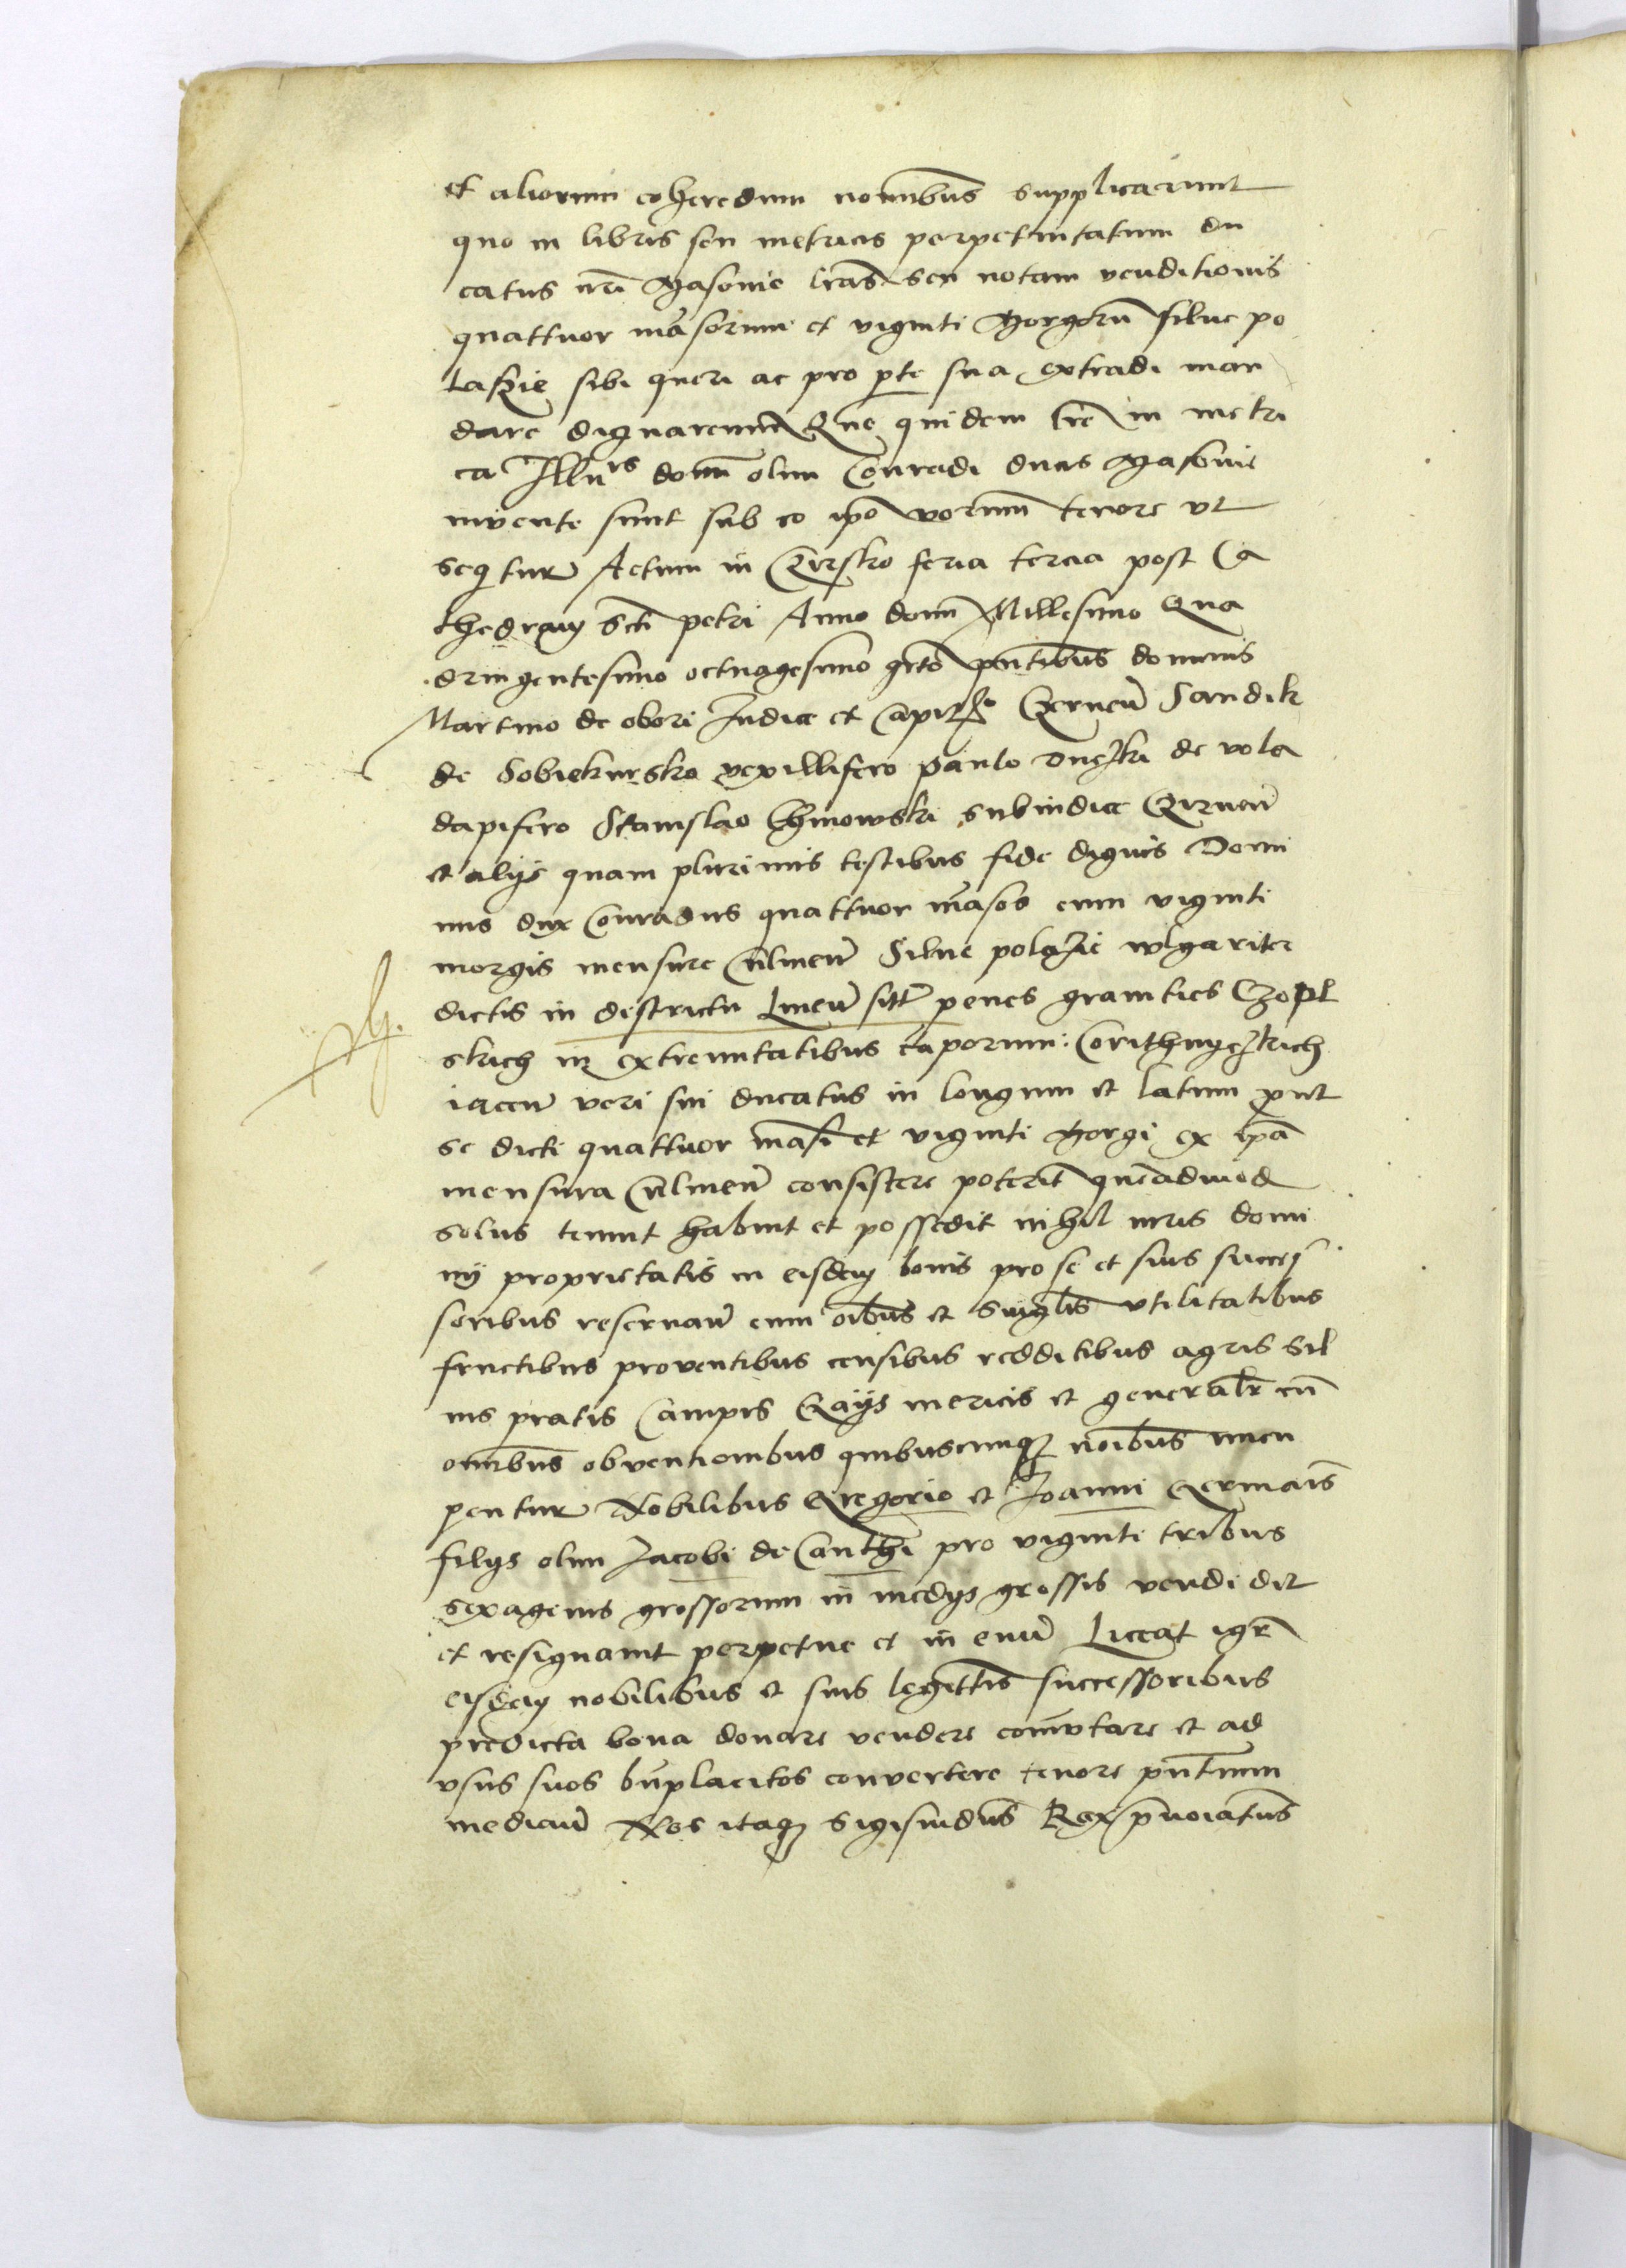 et aliorum coheredum nominibus supplicarunt
quo in libris seu metricis perpetuitatum du
catus nri Masovie lras seu notam venditionis
quattuor mansorum et viginti Morgorum silue po
laszie sibi queri ac pro parte sua extradi man
dare dignaremur Que quidem lre in metri
ca Illustris domini olim Conradi ducis Masovie
invente sunt sub eo ipso verorum tenore ut
sequitur Actum in Czirsko feria tercia post Ca
thedram Scti petri Anno domini Millesimo Qua
dringentesimo octuagesimo presentibus dominis
Martino de obori Iudice et Capitaneo Czernen Sandik
de Sobiekursko vexillifero paulo de vola
dapifero Stanislao subiudice Czirnen
et alijs quam plurimis testibus fide dignis Domi
nus dux Conradus quattuor mansos cum viginti
morgis mensure Culmen Silue polazie wlgariter
dictis in districtu Liuen sitis penes granities
skich in extremitatibus
iacen veri sui ducatus in longum et latum prout
se dicti quattuor mansi et viginti Morgi ex ipsa
mensura Culmen consistere poterit quemadmod
solus tenuit habuit et possedit nihil iuris domi
nij proprietatis in eisdem bonis pro se et suis succes
soribus reservan cum oibus et singlis utilitatibus
fructibus proventibus censibus redditibus agris Sil
uis pratis Campis Gays mericis et generalr cum
omnibus obventionibus quibuscunque noibus nuncu
pentur Nobilibus Gregorio et Joanni Germanis
filys olim Jacobi de pro viginti tribus
sexagenis grossorum in medys grossis vendidit
et resignavit perpetue et in evum Liceat igr
eisdem nobilibus et suis legittis successoribus
predicta bona donare vendere comutare et ad
usus suos bnplacitos convertere tenore pntium
median Nos itaque Sigismudus Rex prenoiatus